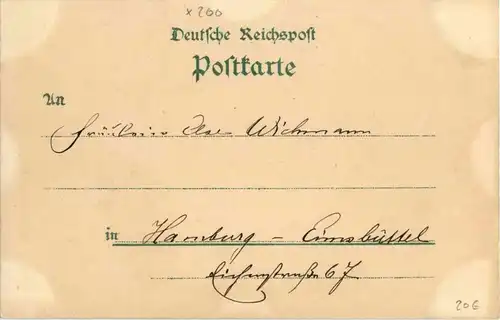 x 200
Deutsche Reichspost
Postkarte
An
Fräulein Wichmann
in Hamburg - Eimsbüttel
Eichenstraße 67
20€